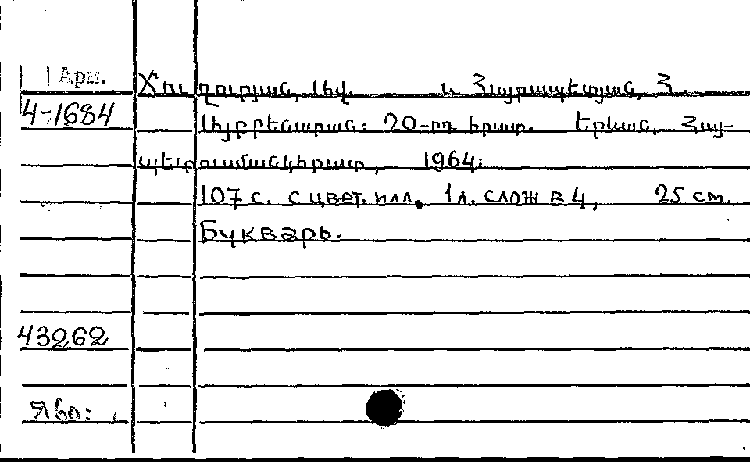 Арм. Խուդուլյան, Ավ. և Հայրապետյան, Հ.
4-1684 Այբբենարան: 20-րդ հրատ. Երևան, Հայ-
պետուսմանկհրատ, 1964:
107 с. с цвет. илл. 1 л. слож в 4, 25 см.
Букварь.
43262